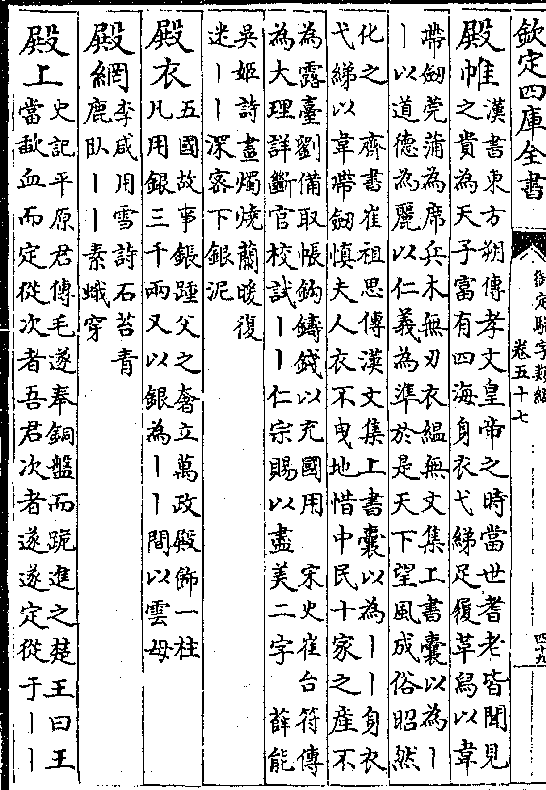 欽定四庫全書
御定駢字類編
卷五十七
四十九
殿帷漢書東方朔傳孝文皇帝之時當世耆老皆聞見
之貴為天子富有四海身衣弋綈足履革舄以韋
帶劒莞蒲為席兵木無刃衣緼無文集上書囊以為丨
丨以道德為麗以仁義為準於是天下望風成俗昭然
化之 齊書崔祖思傳漢文集上書囊以為丨丨身衣
弋綈以韋帶劒慎夫人衣不曳地惜中民十家之産不
為露臺劉備取帳鈎鑄錢以充國用 宋史崔台符傳
為大理詳斷官校試丨丨仁宗賜以盡美二字 薛能
吳姬詩畫燭燒蘭暖復
迷丨丨深宻下銀泥
殿衣五國故事鋹踵父之奢立萬政殿飾一柱
凡用銀三千兩又以銀為丨丨間以雲母
殿網李咸用雪詩石苔青
鹿臥丨丨素蛾穿
殿上史記平原君傳毛遂奉銅盤而跪進之楚王曰王
當歃血而定從次者吾君次者遂遂定從于丨丨